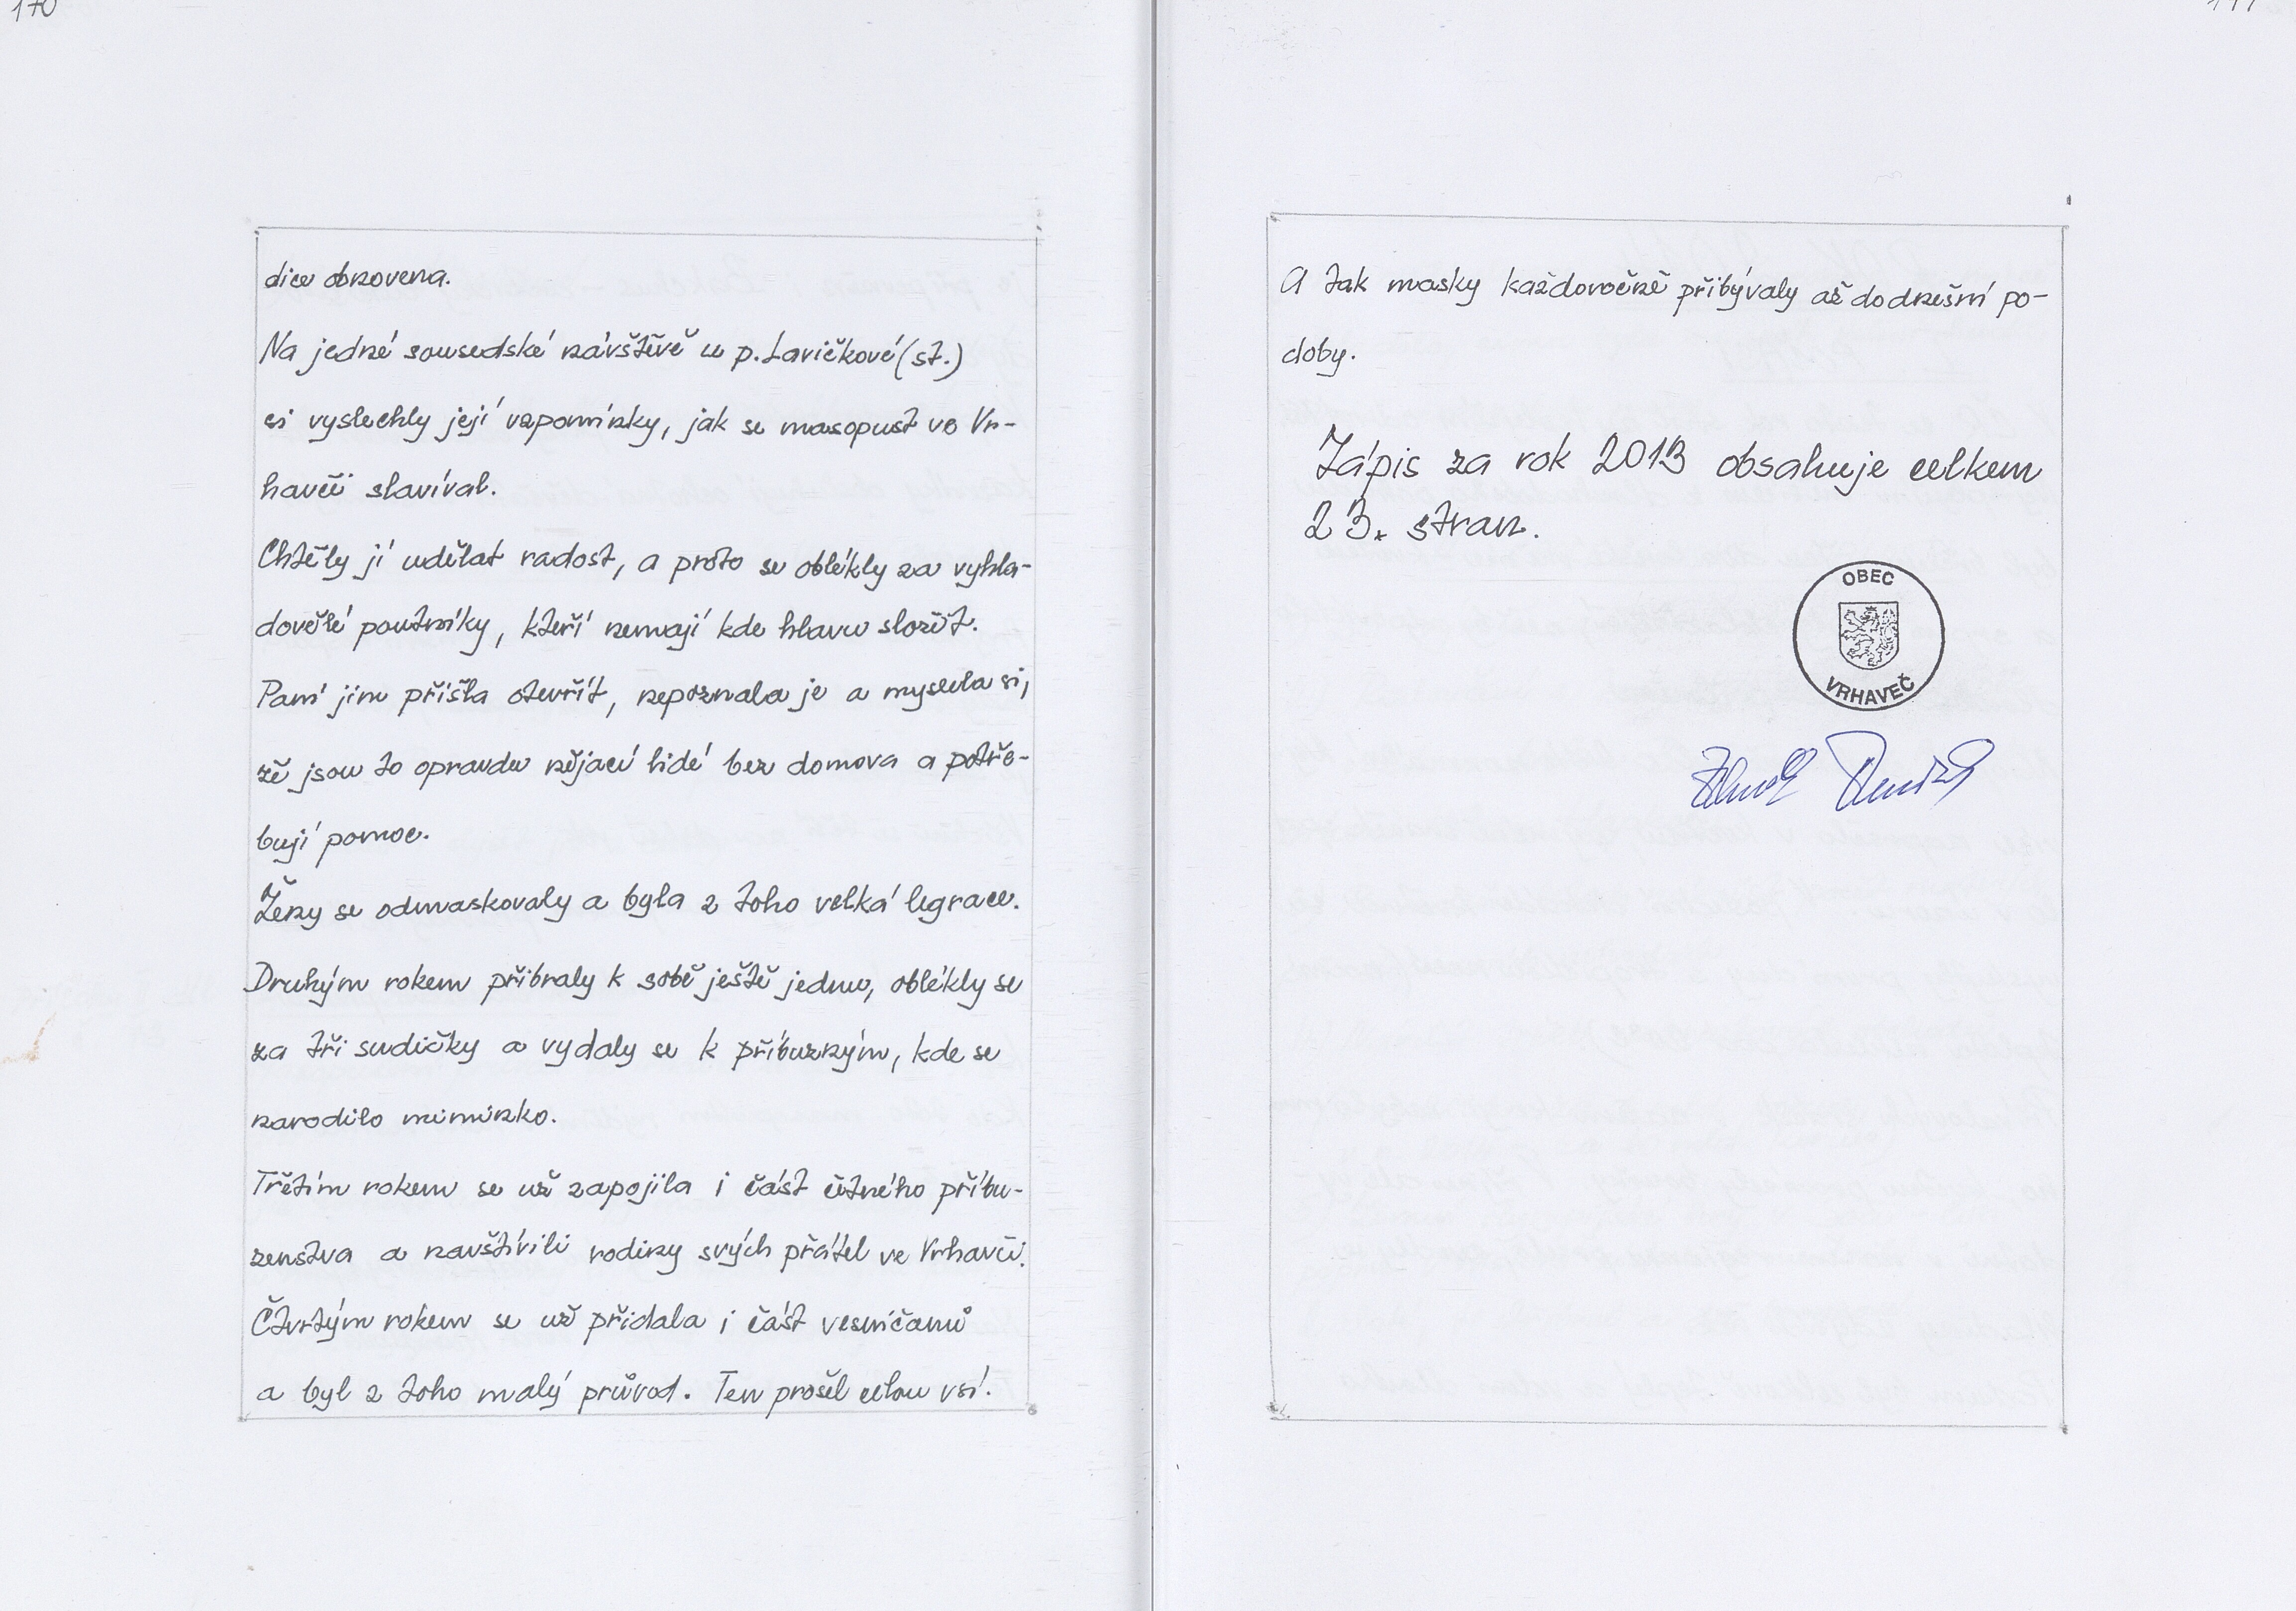 170
dice obnovena.
Na jedné sousedské návštěvě u p. Lavičkové (st.)
si vyslechly její vzpomínky, jak se masopust ve Vr-
havči slavíval.
Chtěly jí udělat radost, a proto se oblékly za vyhla-
dovělé poutníky, kteří nemají kde hlavu složit.
Paní jim přišla otevřít, nepoznala je a myslela si,
že jsou to opravdu nějací lidé bez domova a potře-
bují pomoc.
Ženy se odmaskovaly a byla z toho velká legrace.
Druhým rokem přibraly k sobě ještě jednu, oblékly se
za tři sudičky a vydaly se k příbuzným, kde se
narodilo miminko.
Třetím rokem se už zapojila i část četného příbu-
zenstva a navštívili rodiny svých přátel ve Vrhavči.
Čtvrtým rokem se už přidala i část vesničanů
a byl z toho malý průvod. Ten prošel celou vsí.
A tak masky každoročně přibývaly až do dnešní po-
doby.
Zápis za rok 2013 obsahuje celkem
23. stran.
OBEC
VRHAVEČ